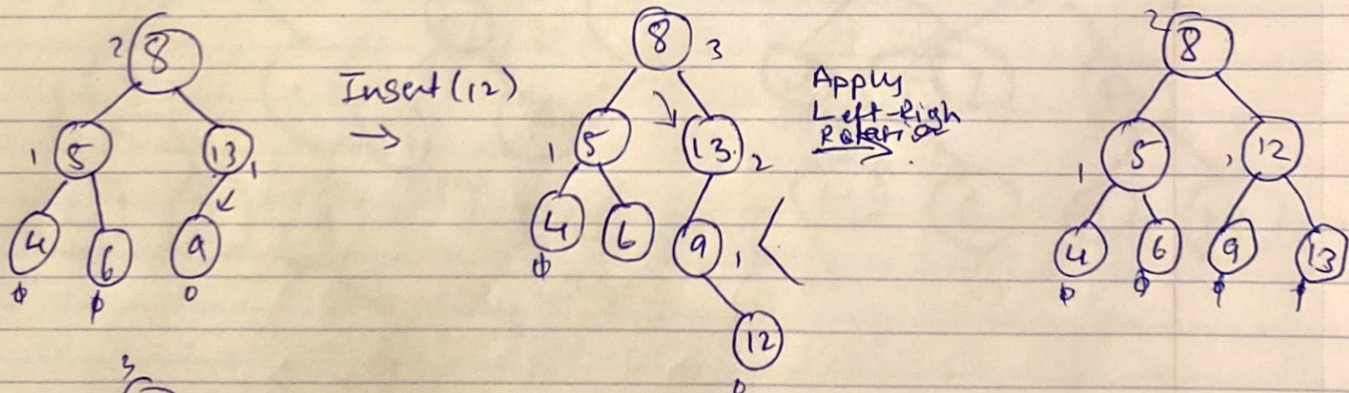 2 8
1 5
13 1
4
6
9
0
0
0
Insert (12)
8 3
1 5
13 2
4
6
9 1
12
0
0
Apply
Left-Righ
Rotation
2 8
1 5
1 12
4
6
9
13
0
0
0
0
3